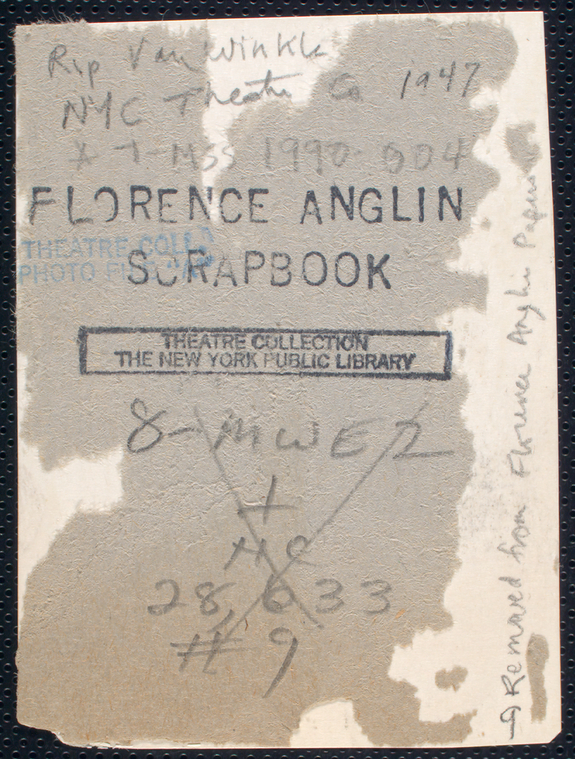 Rip Van Winkle
NYC Theatre Co 1947
X T-Mss 1990-004
FLORENCE ANGLIN
SCRAPBOOK
THEATRE COLL
PHOTO FILE "A"
THEATRE COLLECTION
THE NEW YORK PUBLIC LIBRARY
8-MWEZ
+
n.c.
28,033
# 9
Removed from Florence Anglin Papers